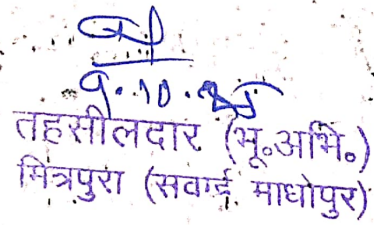 9.10.25
तहसीलदार (भू.अभि.)
मित्रपुरा (सवाई माधोपुर)